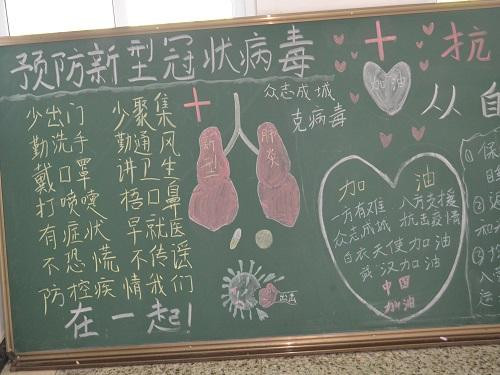 预防新型冠状病毒
少出门 少聚集
勤洗手 勤通风
戴口罩 讲卫生
打喷嚏 捂口鼻
有症状 早就医
不恐慌 不传谣
防控疾 情我们
在一起!
众志成城
克病毒
新型
肺炎
加油
抗
从自
加油
一方有难 八方支援
众志成城 抗击疫情
白衣天使加油
武汉加油
中国
加油
① 保
②
③